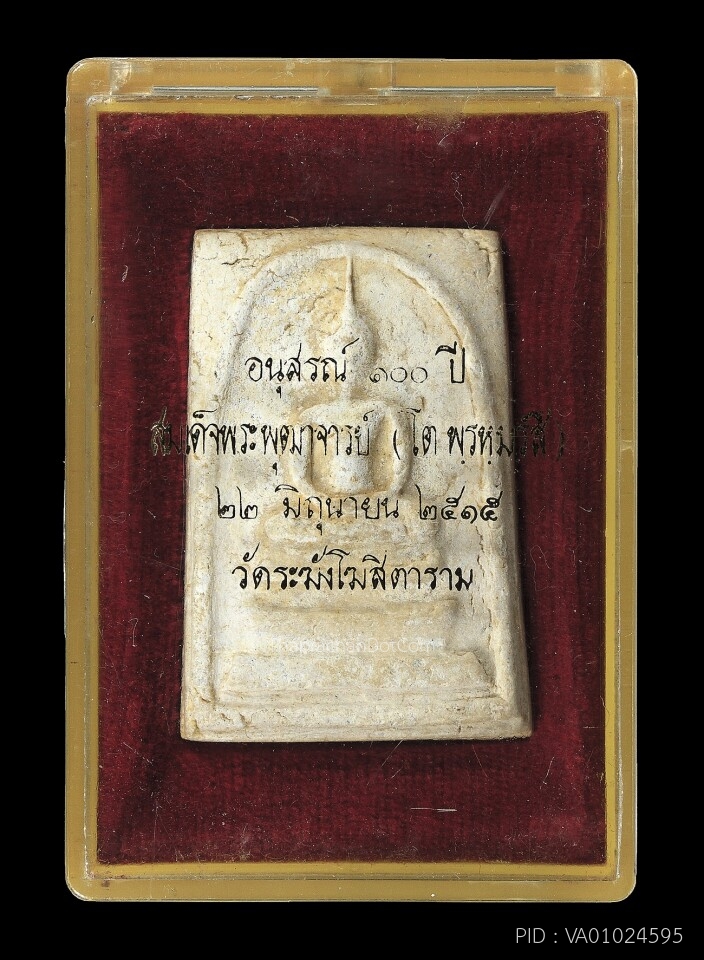 อนุสรณ์ ๑๐๐ ปี
สมเด็จพระพุฒาจารย์ (โต พฺรหฺมรํสี)
๒๒ มิถุนายน ๒๕๑๕
วัดระฆังโฆสิตาราม
PID : VA01024595